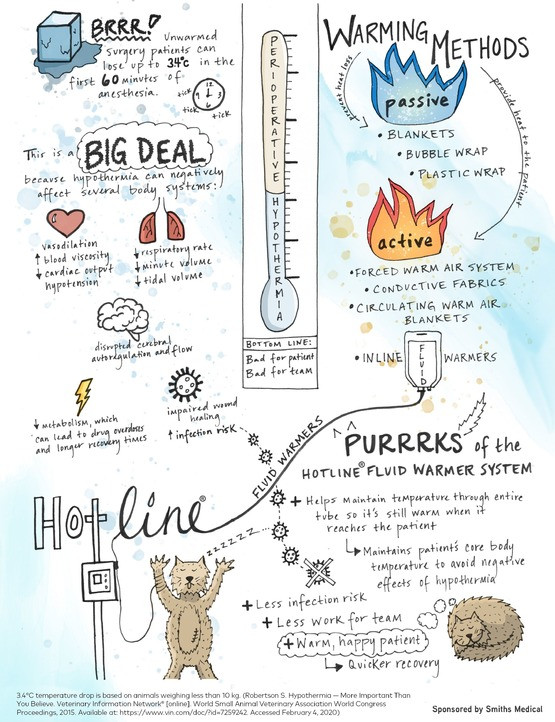 BRRR!
Unwarmed
surgery patients can
lose up to 3.4°c in the
first 60 minutes of
anesthesia.
tick
tick
tick
12
3
6
9
This is a BIG DEAL
because hypothermia can negatively
affect several body systems:
Vasodilation
↑ blood viscosity
↓ cardiac output
hypotension
↓ respiratory rate
↓ minute volume
↓ tidal volume
disrupted cerebral
autoregulation and flow
↓ metabolism, which
can lead to drug overdoses
and longer recovery times
impaired wound
healing
↑ infection risk
PERIOPERATIVE
HYPOTHERMIA
BOTTOM LINE:
Bad for patient
Bad for team
WARMING METHODS
prevent heat loss
passive
• BLANKETS
• BUBBLE WRAP
• PLASTIC WRAP
provide heat to the patient
active
• FORCED WARM AIR SYSTEM
• CONDUCTIVE FABRICS
• CIRCULATING WARM AIR
BLANKETS
• INLINE FLUID WARMERS
FLUID WARMERS
Hotline®
PURRRKS of the
HOTLINE® FLUID WARMER SYSTEM
+ Helps maintain temperature through entire
tube so it's still warm when it
reaches the patient
↳ Maintains patient's core body
temperature to avoid negative
effects of hypothermia
zzzzzz
+ Less infection risk
+ Less work for team
+ Warm, happy patient
↳ Quicker recovery
3.4°C temperature drop is based on animals weighing less than 10 kg. (Robertson S. Hypothermia — More Important Than
You Believe. Veterinary Information Network® [online]. World Small Animal Veterinary Association World Congress
Proceedings, 2015. Available at: https://www.vin.com/doc/?id=7259242. Accessed February 4, 2020)
Sponsored by Smiths Medical